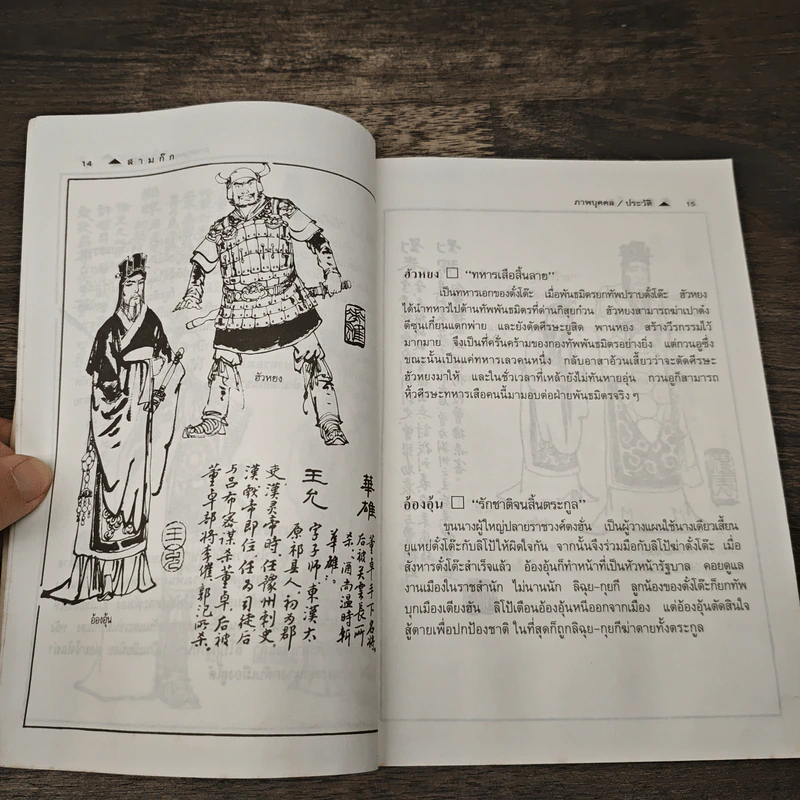 14 ▲ สามก๊ก
ฮัวหยง
อ้องอุ้น
華雄
董卓手下名將,
后被关雲長所
杀,酒尚温時斬
華雄。
王允
字子师,東漢太
原祁县人,初为郡
吏,漢灵帝時,任豫州刺史,
漢献帝即位,任为司徒后
与吕布密謀杀董卓,后被
董卓部将李傕、郭汜所杀。
王允
ภาพบุคคล / ประวัติ ▲ 15
ฮัวหยง □ “ทหารเสือสิ้นลาย”
เป็นทหารเอกของตั๋งโต๊ะ เมื่อพันธมิตรยกทัพปราบตั๋งโต๊ะ ฮัวหยง
ได้นำทหารไปต้านทัพพันธมิตรที่ด่านกิสุยก๋วน ฮัวหยงสามารถฆ่าเปาต๋ง
ตีซุนเกี๋ยนแตกพ่าย และยังตัดศีรษะยูสิด พานหอง สร้างวีรกรรมไว้
มากมาย จึงเป็นที่ครั่นคร้ามของกองทัพพันธมิตรอย่างยิ่ง แต่กวนอูซึ่ง
ขณะนั้นเป็นแค่ทหารเลวคนหนึ่ง กลับอาสาอ้วนเสี้ยวว่าจะตัดศีรษะ
ฮัวหยงมาให้ และในชั่วเวลาที่เหล้ายังไม่ทันหายอุ่น กวนอูก็สามารถ
หิ้วศีรษะทหารเสือคนนี้มามอบต่อฝ่ายพันธมิตรจริง ๆ
อ้องอุ้น □ “รักชาติจนสิ้นตระกูล”
ขุนนางผู้ใหญ่ปลายราชวงศ์ตงฮั่น เป็นผู้วางแผนใช้นางเตียวเสี้ยน
ยุแหย่ตั๋งโต๊ะกับลิโป้ให้ผิดใจกัน จากนั้นจึงร่วมมือกับลิโป้ฆ่าตั๋งโต๊ะ เมื่อ
สังหารตั๋งโต๊ะสำเร็จแล้ว อ้องอุ้นก็ทำหน้าที่เป็นหัวหน้ารัฐบาล คอยดูแล
งานเมืองในราชสำนัก ไม่นานนัก ลิฉุย-กุยกี ลูกน้องของตั๋งโต๊ะก็ยกทัพ
บุกเมืองเตียงฮัน ลิโป้เตือนอ้องอุ้นหนีออกจากเมือง แต่อ้องอุ้นตัดสินใจ
สู้ตายเพื่อปกป้องชาติ ในที่สุดก็ถูกลิฉุย-กุยกีฆ่าตายทั้งตระกูล